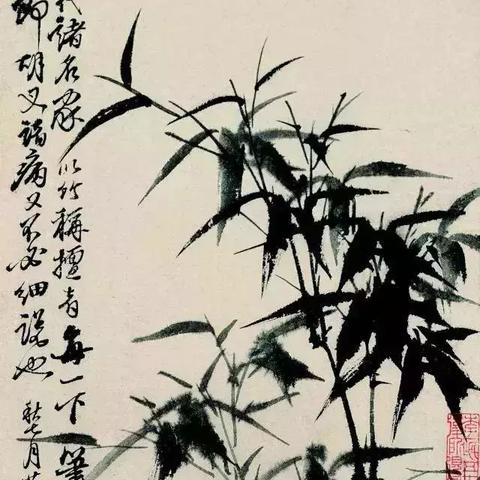 諸名家以竹稱擅者每一下筆
胡又諸病又不必細說也
秋七月